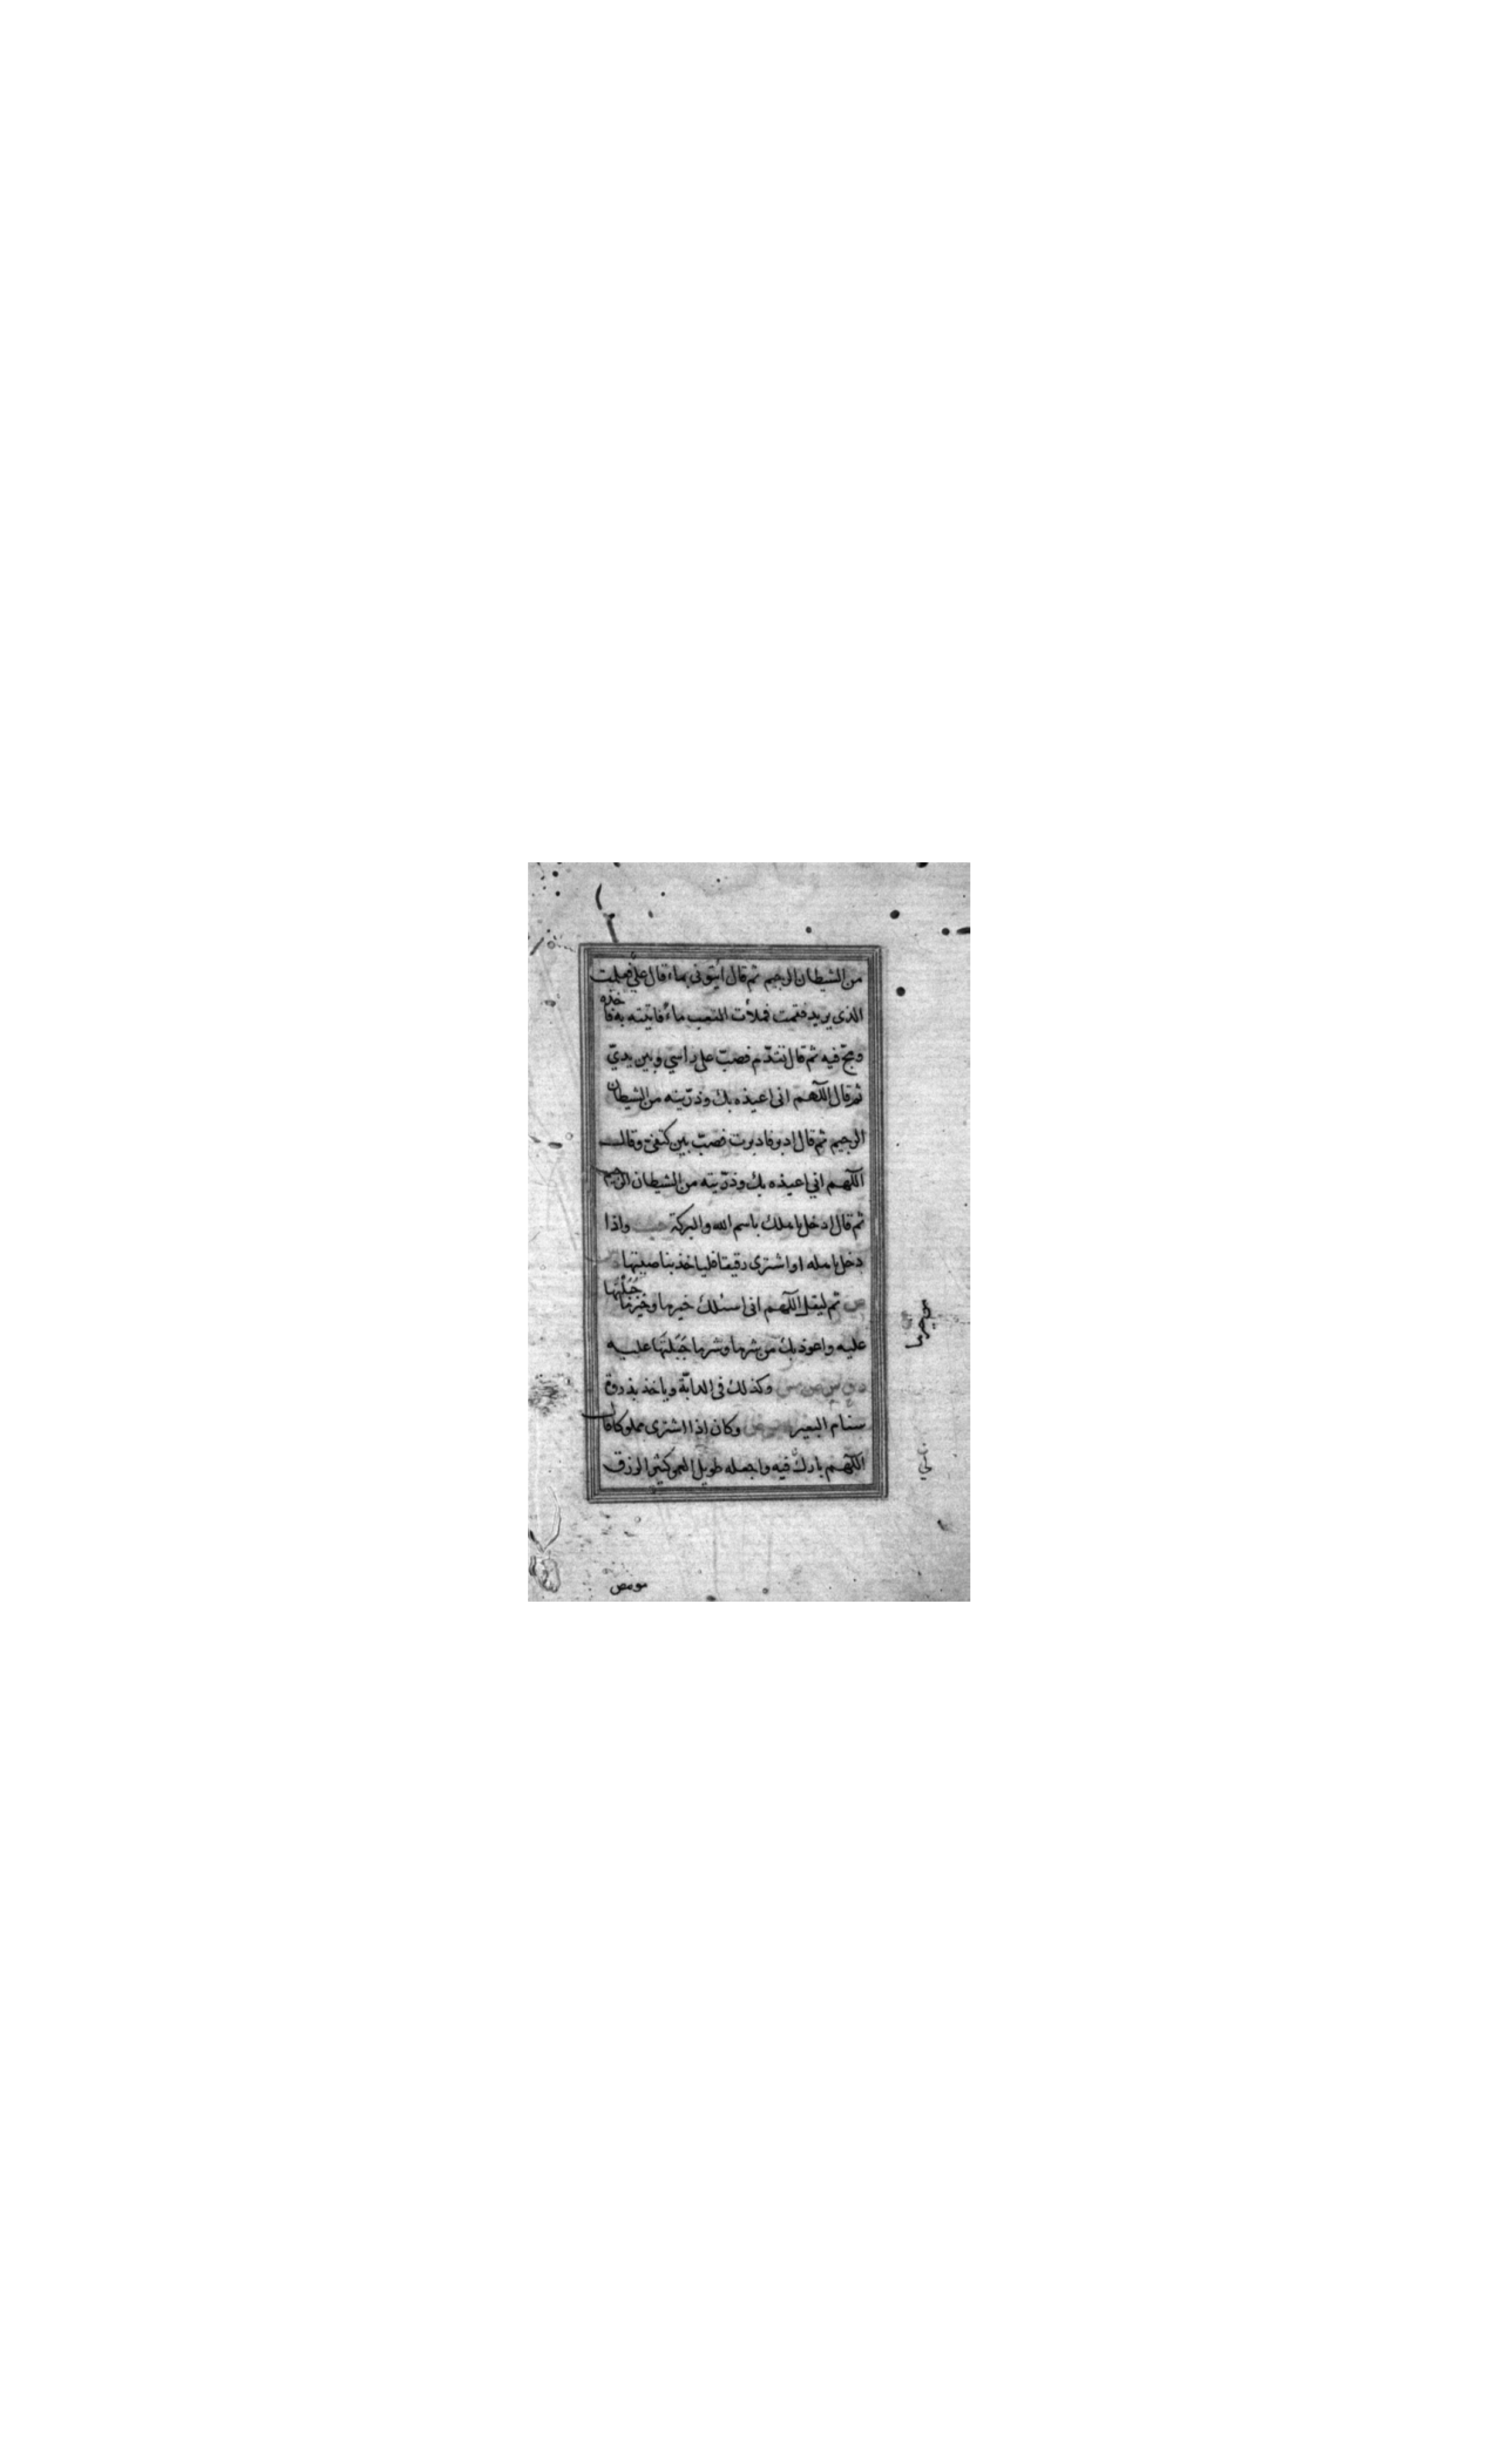 من الشيطان الرجيم ثم قال ائتونى بماء قال علىّ فعلمت
الذى يريد فقمت فملأت القعب ماءً فاتيته به فاخذه
ومجّ فيه ثم قال تقدّم فصبّ على راسي وبين يديّ
ثم قال اللّهم انى اعيذه بك وذرّيته من الشيطان
الرجيم ثم قال ادبر فادبرت فصبّ بين كتفىّ وقال
اللّهم انى اعيذه بك وذرّيته من الشيطان الرجيم
ثم قال ادخل باهلك باسم الله والبركة حب واذا
دخل باهله او اشترى رقيقا فلياخذ بناصيتها د
س ثم ليقل اللّهم انى اسئلك خيرها وخير ما جَبَلْتَها
عليه واعوذ بك من شرها وشر ما جَبَلتَها عليه
د ق س مس وكذلك فى الدابّة وياخذ بذروة
سنام البعير وكان اذا اشترى مملوكا قال
اللّهم بارك فيه واجعله طويل العمر كثير الرزق
مو مص